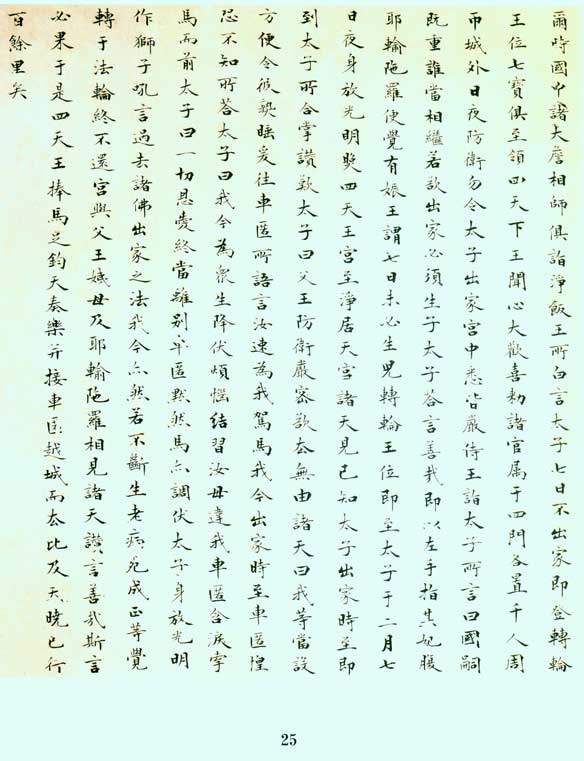 爾時國中諸大詹相師俱詣淨飯王所白言太子七日不出家即登轉輪
王位七寶俱至領四天下王聞心大歡喜勑諸官属于四門各置千人周
帀城外日夜防衛勿令太子出家宫中悉皆嚴侍王詣太子所言曰國嗣
既重誰當相繼若欲出家必須生子太子答言善哉即以左手指其妃腹
耶輪陁羅便覺有娠王謂七日未必生兒轉輪王位即至太子于二月七
日夜身放光明照四天王宫至淨居天宫諸天見已知太子出家時至即
到太子所合掌讃歎太子曰父王防衛嚴密欲去無由諸天曰我等當設
方便令彼熟睡爰往車匿所語言汝速為我駕馬我今出家時至車匿惶
恐不知所荅太子曰我今為衆生降伏煩惱結習汝毋違我車匿含淚牽
馬而前太子曰一切恩愛終當離别車匿默然馬亦調伏太子身放光明
作獅子吼言過去諸佛出家之法我今亦然若不斷生老病死成正等覺
轉于法輪終不還宫與父王姨母及耶輸陁羅相見諸天讃言善哉斯言
必果于是四天王捧馬足鈞天奏樂并接車匿越城而去比及天曉已行
百餘里矣
25